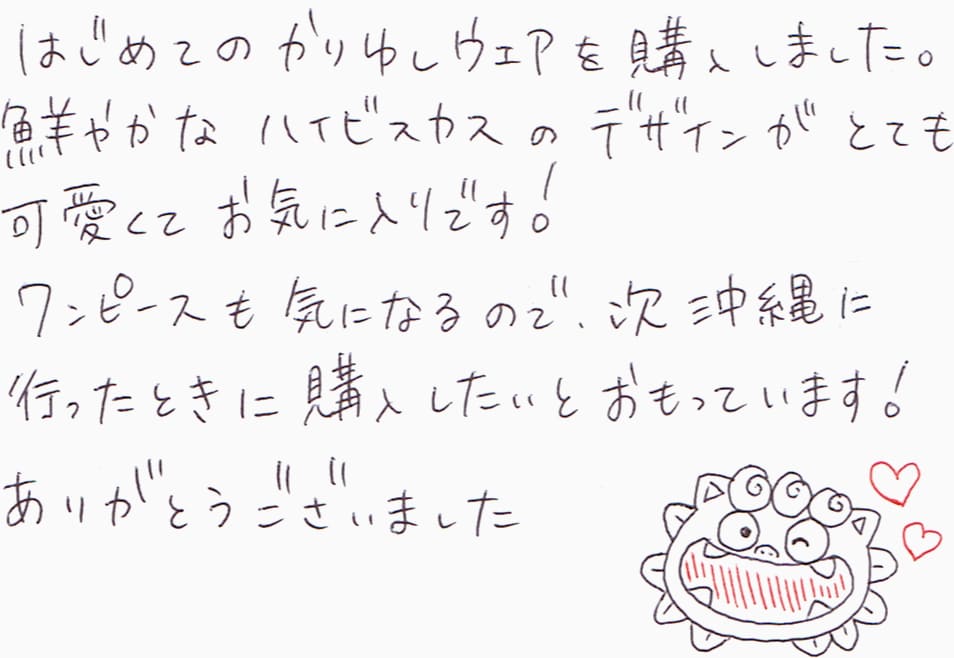 はじめてのかりゆしウェアを購入しました。
鮮やかなハイビスカスのデザインがとても
可愛くてお気に入りです!
ワンピースも気になるので、次沖縄に
行ったときに購入したいとおもっています!
ありがとうございました